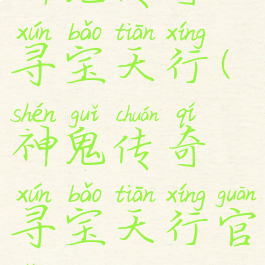 xún bǎo tiān xíng
寻宝天行(
shén guǐ chuán qí
神鬼传奇
xún bǎo tiān xíng guān
寻宝天行官